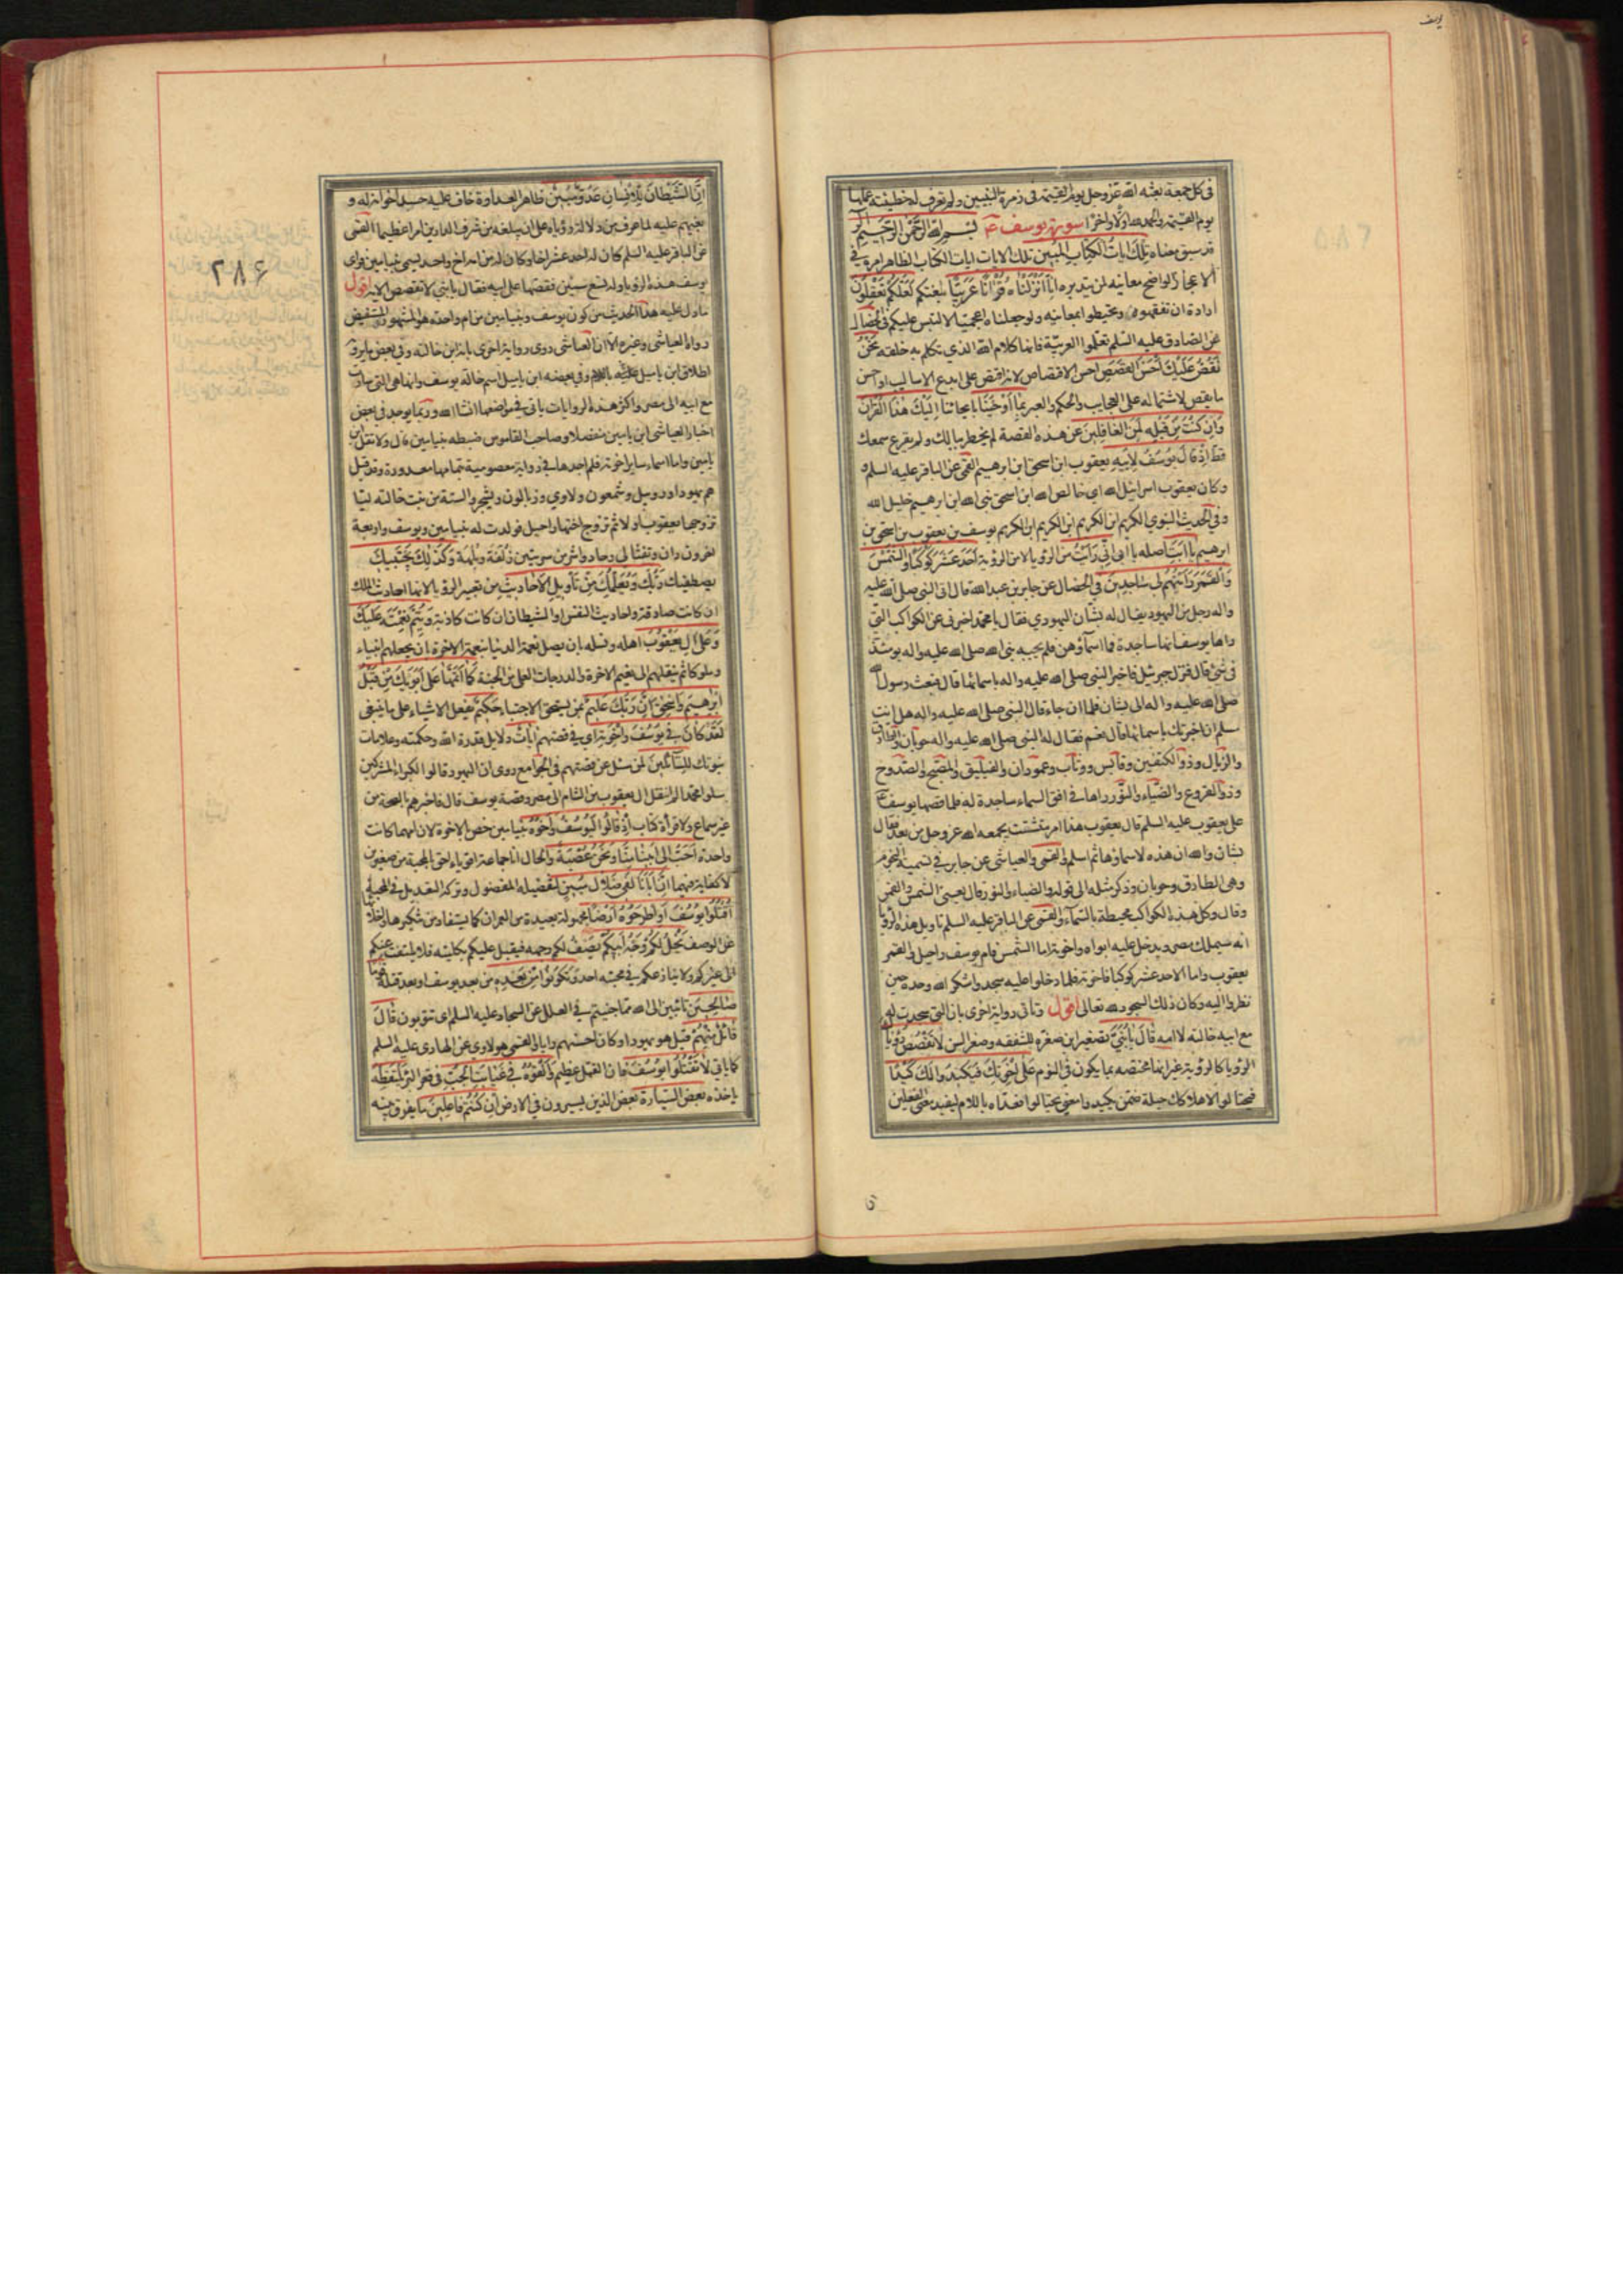 يوسف
في كل جمعة بعثه الله عز وجل يوم القيمة في زمرة النبيين ولم تعرف له خطيئة عملها
يوم القيمة والحمد لله اولا واخرا سورة يوسف بسم الله الرحمن الرحيم الر
قد سبق معناه تلك ايات الكتاب المبين تلك الايات ايات الكتاب الظاهر امره في
الاعجاز الواضح معانيه لمن يتدبره انا انزلناه قرانا عربيا بلغتكم لعلكم تعقلون
ارادة ان تفقهوه وتحيطوا بمعانيه ولو جعلناه اعجميا لالتبس عليكم في الخصال
عن الصادق عليه السلم تعلموا العربية فانها كلام الله الذي تكلم به خلقه نحن
نقص عليك احسن القصص احسن الاقتصاص لانه اقتص على ابدع الاساليب او احسن
ما يقص لاشتماله على العجايب والحكم والعبر بما اوحينا بايحائنا اليك هذا القران
وان كنت من قبله لمن الغافلين عن هذه القصة لم يخطر ببالك ولم يقرع سمعك
قط اذ قال يوسف لابيه يعقوب ابن اسحق ابن ابرهيم القمي عن الباقر عليه السلم
وكان يعقوب اسرائيل الله اي خالص الله ابن اسحق نبي الله ابن ابرهيم خليل الله
وفي الحديث النبوي الكريم ابن الكريم ابن الكريم ابن الكريم يوسف بن يعقوب بن اسحق بن
ابرهيم يا ابت اصله يا ابي اني رايت من الرؤيا لا من الرؤية احد عشر كوكبا والشمس
والقمر رايتهم لي ساجدين في الخصال عن جابر بن عبد الله قال اتى النبي صلى الله عليه
واله رجل من اليهود يقال له بشان اليهودي فقال يا محمد اخبرني عن الكواكب التي
راها يوسف انها ساجدة فما اسماؤهن فلم يجبه نبي الله صلى الله عليه واله يومئذ
في شئ قال فنزل جبرئيل فاخبر النبي صلى الله عليه واله باسمائها قال فبعث رسول الله
صلى الله عليه واله الى بشان فلما ان جاءه قال النبي صلى الله عليه واله هل انت
مسلم ان اخبرتك باسمائها قال نعم فقال له النبي صلى الله عليه واله حوبان والطارق
والزيال وذو الكتفين وقابس ووثاب وعمودان والفيلق والمصبح والصدوح
وذو الفروع والضياء والنور راها في افق السماء ساجدة له فلما قصها يوسف
على يعقوب عليه السلم قال يعقوب هذا امر متشتت يجمعه الله عز وجل من بعد فقال
بشان والله ان هذه لاسماؤها ثم اسلم والقمي والعياشي عن جابر في تسمية النجوم
وهي الطارق وحوبان وذكر مثله الى قوله والضياء والنور قال يعني الشمس والقمر
وقال وكل هذه الكواكب محيطة بالسماء والقمي عن الباقر عليه السلم تاويل هذه الرؤيا
انه سيملك مصر ويدخل عليه ابواه واخوته اما الشمس فام يوسف راحيل والقمر
يعقوب واما الاحد عشر كوكبا فاخوته فلما دخلوا عليه سجدوا شكرا لله وحده حين
نظروا اليه وكان ذلك السجود لله تعالى اقول وتاتي رواية اخرى بان التي سجدت له
مع ابيه خالته لا امه قال يا بني تصغير ابن صغره للشفقه وصغر السن لا تقصص رؤياك
الرؤيا كالرؤية غير انها مختصه بما يكون في النوم على اخوتك فيكيدوا لك كيدا
فيحتالوا لاهلاكك حيلة ضمن يكيدوا معنى يحتالوا فعداه باللام ليفيد معنى الفعلين
ان الشيطان للانسان عدو مبين ظاهر العداوة خاف عليه حسد اخوانه له و
بغيهم عليه لما عرف من دلالة رؤياه على ان يبلغه من شرف الدارين امرا عظيما القمي
عن الباقر عليه السلم كان له احد عشر اخا وكان له من امه اخ واحد يسمى بنيامين فراى
يوسف هذه الرؤيا وله تسع سنين فقصها على ابيه فقال يا بني لا تقصص الاية اقول
ما دل عليه هذا الحديث من كون يوسف وبنيامين من ام واحدة هو المشهور المستفيض
رواه العياشي وغيره الا ان العياشي روى رواية اخرى بانه ابن خالته وفي بعض ما يرويه
اطلاق ابن ياميل عليه باللام وفي بعضه ابن ياميل اسم خالة يوسف وانها هي التي صارت
مع ابيه الى مصر واكثر هذه الروايات ياتي في مواضعها انشاء الله وربما يوجد في بعض
اخبار العياشي ابن يامين منفصلا وصاحب القاموس ضبطه بنيامين قال ولا تقل ابن
يامين واما اسماء ساير اخوته فلم اجدها في رواية معصومية بتمامها معدودة وقد قيل
هم يهودا وروبيل وشمعون ولاوي وزبالون ويشجر والستة من بنت خالته ليا
تزوجها يعقوب اولا ثم تزوج اختها راحيل فولدت له بنيامين ويوسف واربعة
اخرون دان ونفتالي وحاد واشر من سريتين زلفة وبلهة وكذلك يجتبيك
يصطفيك ربك ويعلمك من تاويل الاحاديث من تعبير الرؤيا لانها احاديث الملك
ان كانت صادقة واحاديث النفس او الشيطان ان كانت كاذبة ويتم نعمته عليك
وعلى ال يعقوب اهله ونسله بان يصل نعمة الدنيا بنعمة الاخرة بان يجعلهم انبياء
وملوكا ثم ينقلهم الى نعيم الاخرة والدرجات العلى من الجنة كما اتمها على ابويك من قبل
ابرهيم واسحق ان ربك عليم بمن يستحق الاجتباء حكيم يفعل الاشياء على ما ينبغي
لقد كان في يوسف واخوته اي في قصتهم ايات دلايل قدرة الله وحكمته وعلامات
نبوتك للسائلين لمن سئل عن قصتهم في الجوامع روى ان اليهود قالوا لكبراء المشركين
سلوا محمدا لم انتقل ال يعقوب من الشام الى مصر وقصة يوسف قال فاخبرهم بالصحة من
غير سماع ولا قراءة كتاب اذ قالوا ليوسف واخوه بنيامين خص الاخوة لان امهما كانت
واحدة احب الى ابينا منا ونحن عصبة والحال انا جماعة اقوياء احق بالمحبة من صغيرين
لا كفاية فيهما ان ابانا لفي ضلال مبين لتفضيله المفضول وتركه التعديل في المحبة
اقتلوا يوسف او اطرحوه ارضا مجهولة بعيدة من العمران كما يستفاد من تنكيرها واخلائها
عن الوصف يخل لكم وجه ابيكم يصف لكم وجهه فيقبل عليكم بكليته فلا يلتفت عنكم
الى غيركم ولا ينازعكم في محبته احد وتكونوا من بعده من بعد يوسف او بعد قتله قوما
صالحين تائبين الى الله مما جنيتم في العلل عن السجاد عليه السلم اي تتوبون قال
قائل منهم قيل هو يهودا وكان احسنهم رايا والقمي هو لاوي عن الهادي عليه السلم
كما ياتي لا تقتلوا يوسف فان القتل عظيم والقوه في غيابت الجب في قعر البئر يلتقطه
ياخذه بعض السيارة بعض الذين يسيرون في الارض ان كنتم فاعلين ما يفرق بينه
۲۸۶